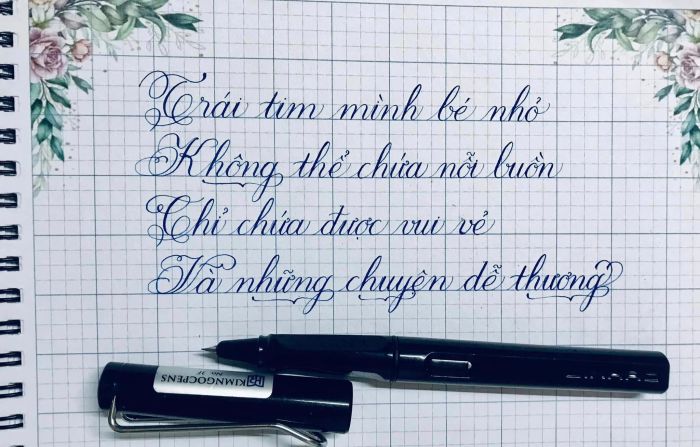 Trái tim mình bé nhỏ
Không thể chứa nỗi buồn
Chỉ chứa được vui vẻ
Và những chuyện dễ thương
KIMNGOCPENS
No. 3F